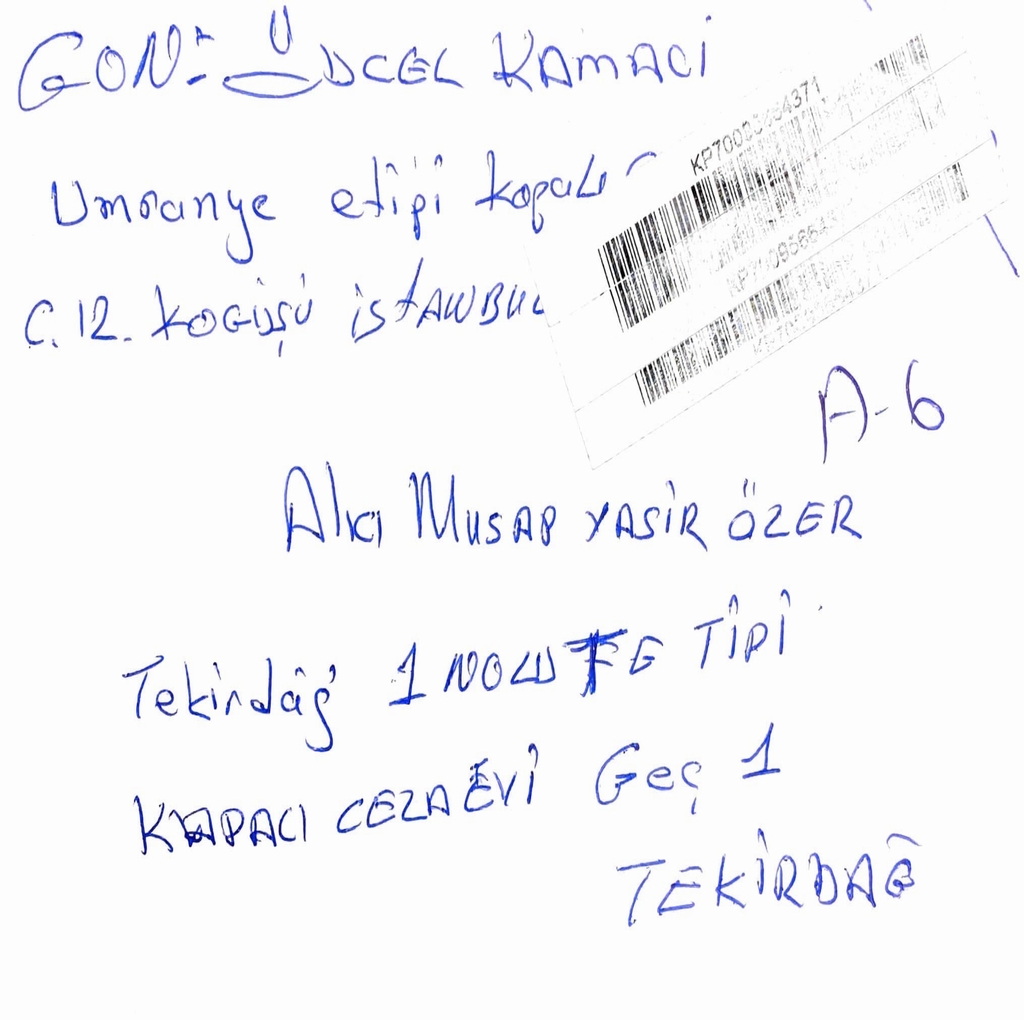 GON:- ÜCEL KAMACI
Umranye etipi kopalı
C.12. KOGÜŞÜ İSTANBUL
KP70
A-6
Alıcı MUSAP YASİR ÖZER
Tekirdağ 1 NOLU F TİPİ
KAPACI CEZAEVİ Geç 1
TEKİRDAĞ